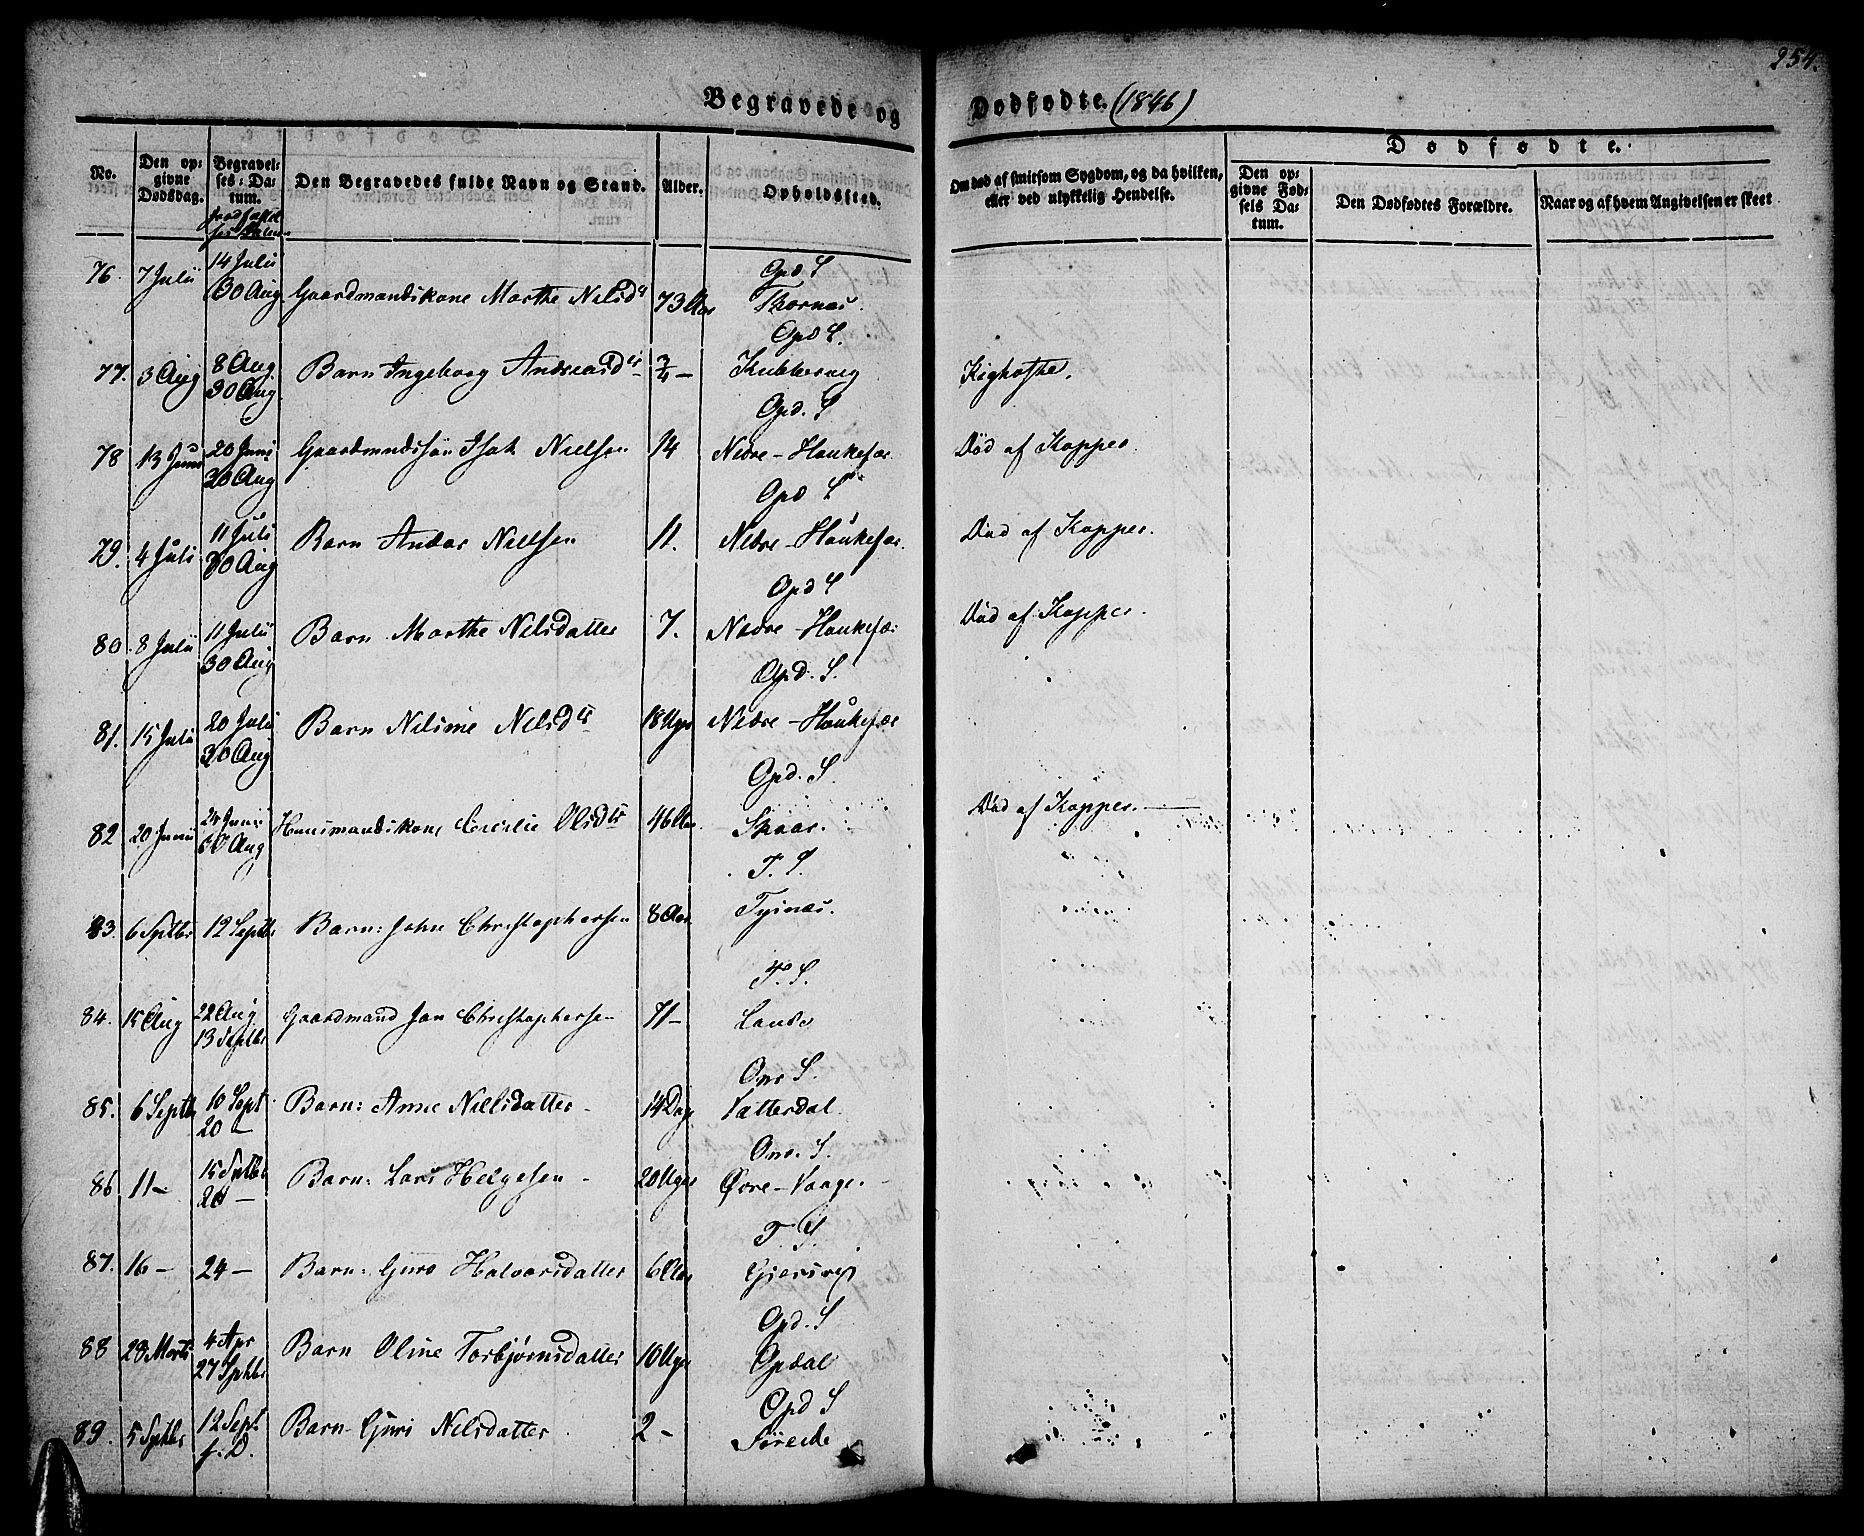 254.
Begravede og Dødfødte. (1846)
No.
Den op-
givne
Dødsdag.
Begravel-
ses-Da-
tum.
Den Begravedes fulde Navn og Stand.
Alder.
Opholdssted.
Om død af smitsom Sygdom, og da hvilken,
eller ved ulykkelig Hendelse.
Dødfødte.
Den op-
givne Fød-
sels Da-
tum.
Den Dødfødtes Forældre.
Naar og af hvem Angivelsen er skeet
Opd S
76. 7 Julii 14 Julii
30 Aug. Gaardmandskone Marthe Nilsdr 73 Aar Thornæs.
Opd S.
77. 3 Aug 8 Aug. Barn Ingeborg Andreasdr 3/4 – Kubbervig Kighoste.
30 Aug.
Opd. S
78 13 Juni 20 Juni Gaardmndssøn Isak Nielsen 14 Nedre-Haukefær Död af Kopper.
30 Aug
Opd S
79. 4 Juli 11 Juli Barn Andar Nielsen 11. Nedre-Haukefær. Död af Kopper.
30 Aug
Opd S
80. 8 Julii 11 Julii Barn Marthe Nilsdatter 7. Nedre-Haukefær Död af Kopper.
30 Aug
Opd. S.
81. 15 Juli 20 Julii Barn Nilsine Nilsdr 18 Uger Nedre-Haukefær
30 Aug
Opd. S.
82 20 Junii 24 Junii Huusmandskone Cecilie Olsdr 46 Aar. Skaar. Död af Kopper.
30 Aug
T. S.
83. 6 Septbr 12 Septbr Barn: John Christophersen 8 Aar Tysnæs.
T. S.
84. 15 Aug 22 Aug Gaardmand Jan Christophersen 71 – Lande
13 Septbr
Ons S.
85. 6 Septbr 10 Sept Barn: Anne Nielsdatter – 14 Dage Vatterdal.
20 –
Ons. S.
86 11 – 15 Septbr Barn: Lars Helgesen – 20 Uger Øvre-Vaage. –
20 –
T. S.
87. 16 – 24 – Barn: Guro Halvorsdatter 6 Aar Gjersvig
Opd. S
88 28 Marts 4 Apr Barn Oline Torbjørnsdatter 10 Uger Opdal
27 Septbr
Opd S
89. 5 Septbr 12 Sept Barn Guri Nilsdatter 2 – Søreide
f. D.